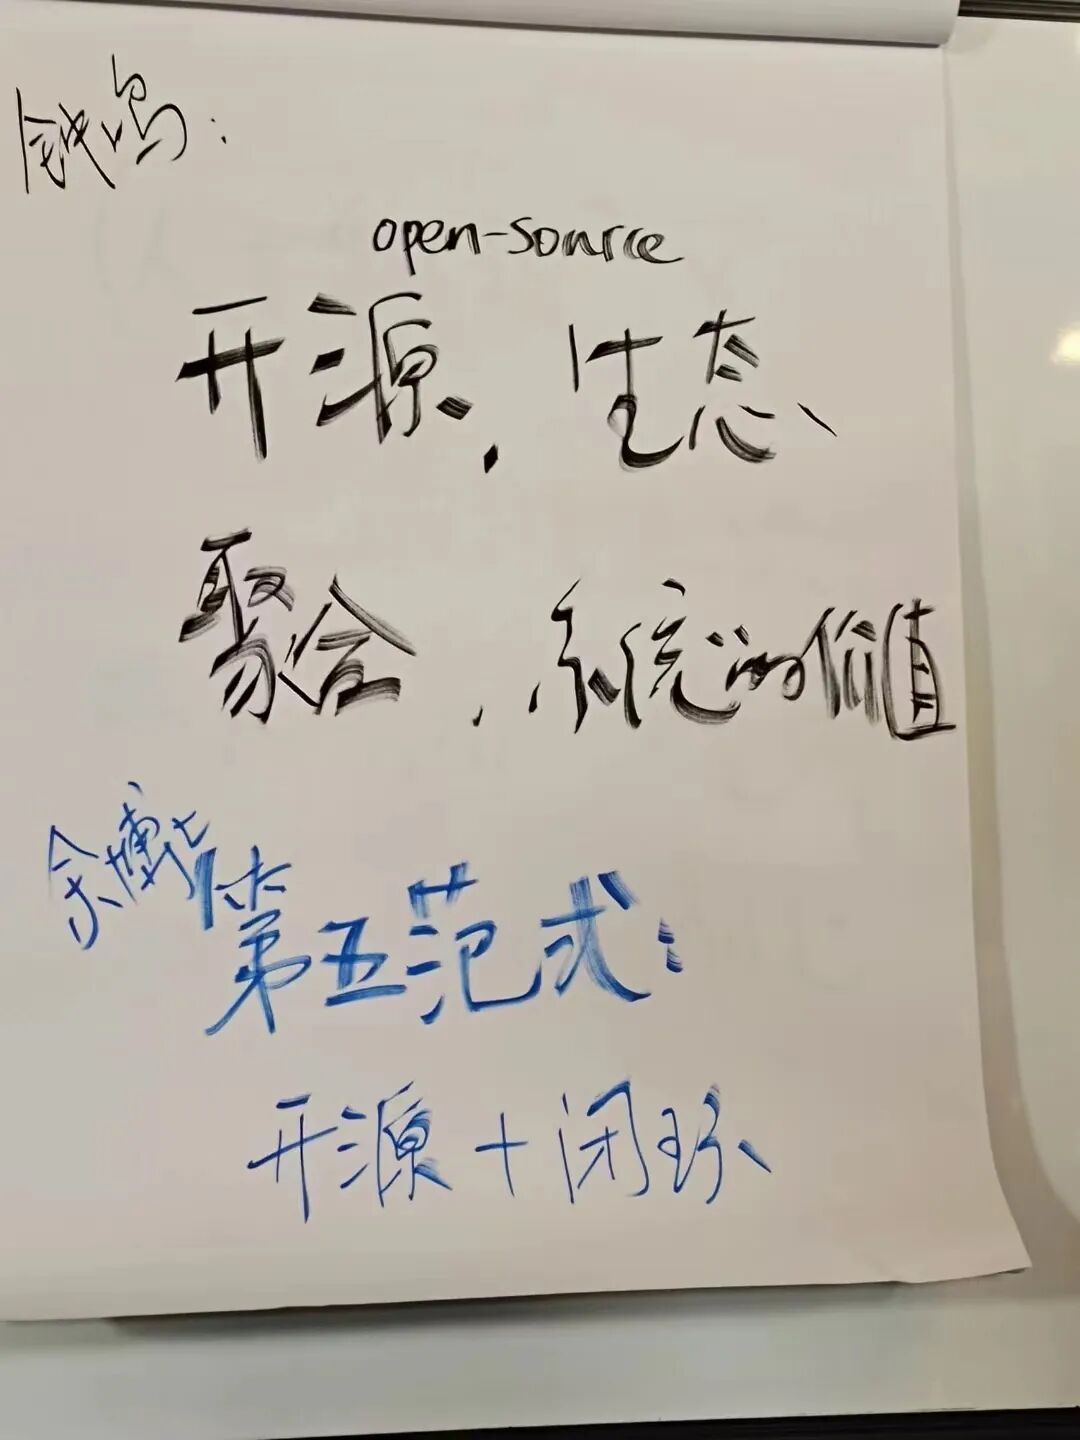 钱鸣:
open-source
开源, 生态、
聚合, 系统的价值
余博士
第五范式:
开源+闭环